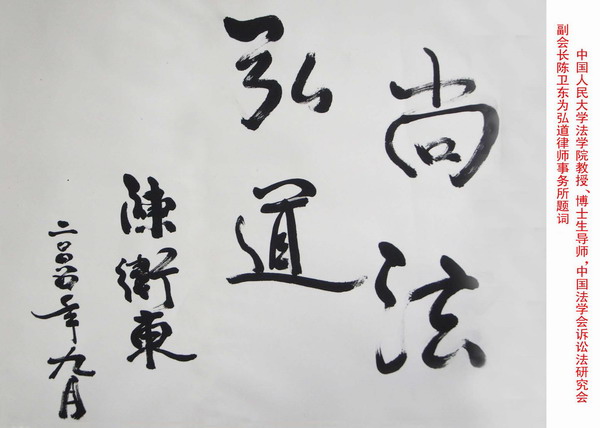 中国人民大学法学院教授、博士生导师,中国法学会诉讼法研究会
副会长陈卫东为弘道律师事务所题词
尚法
弘道
陳衛東
二〇〇四年九月